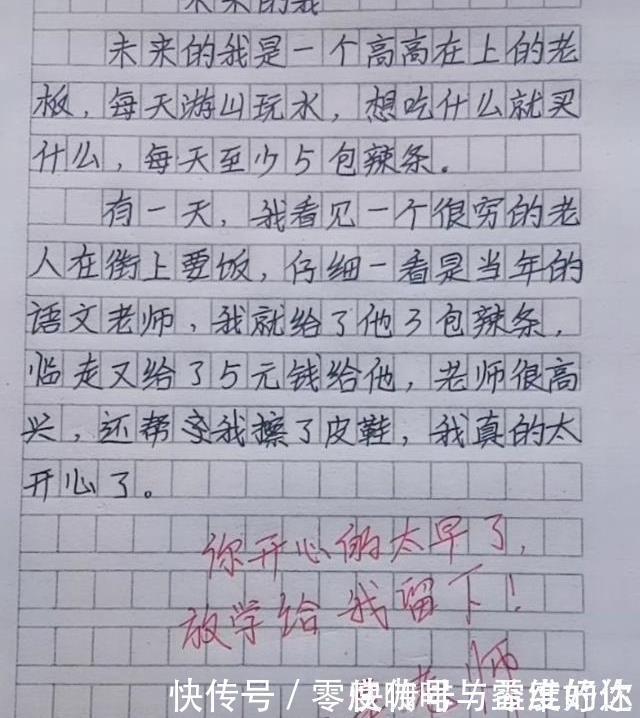 未来的我
未来的我是一个高高在上的老
板，每天游山玩水，想吃什么就买
什么，每天至少5包辣条。
有一天，我看见一个很穷的老
人在街上要饭，仔细一看是当年的
语文老师，我就给了他3包辣条，
临走又给了5元钱给他，老师很高
兴，还帮我擦了皮鞋，我真的太
开心了。
你开心的太早了，
放学给我留下！
老师
快传号／零